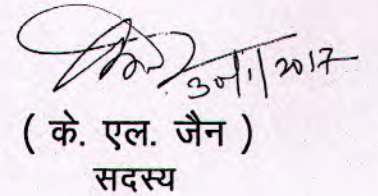 30/1/2017
( के. एल. जैन )
सदस्य